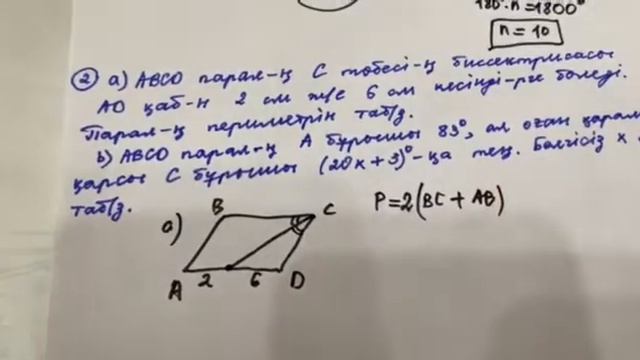 180°·n=1800°
n=10
② a) ABCD парал-ң C төбесі-ң биссектрисасы
AD қаб-н 2 см ж/е 6 см кесінді-рге бөледі.
Парал-ң периметрін таб/з.
b) ABCD парал-ң A бұрышы 83°, ал оған қарама
қарсы C бұрышы (20x+3)°-қа тең. Белгісіз x
таб/з.
a)
B C
P=2(BC+AB)
A 2 6 D